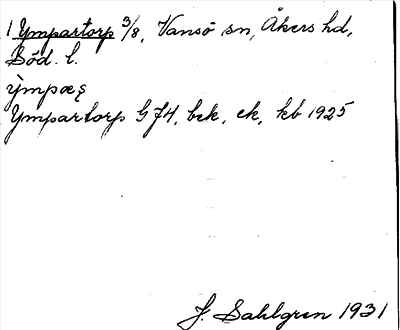 1 Ympartorp 3/8, Vansö sn, Åkers hd,
Söd. l.
ỳmpæȩ
Ympartorp G 74, bek, ek, kb 1925
J. Sahlgren 1931